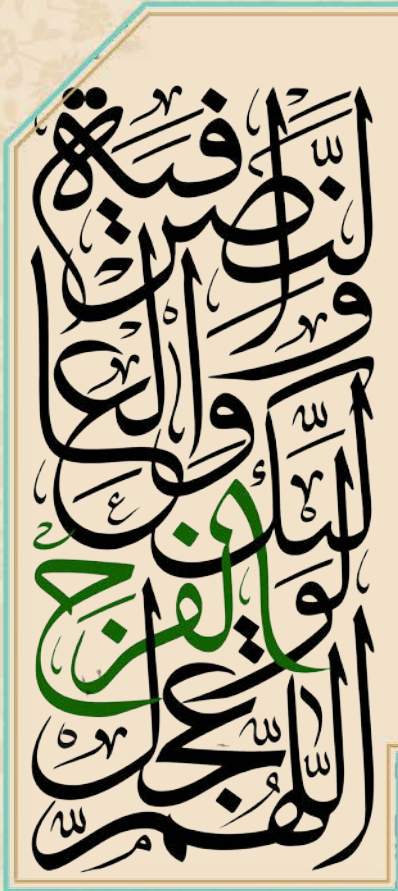 اللّهمّ عجّل
لوليّك الفرج
والعافية
والنّصر